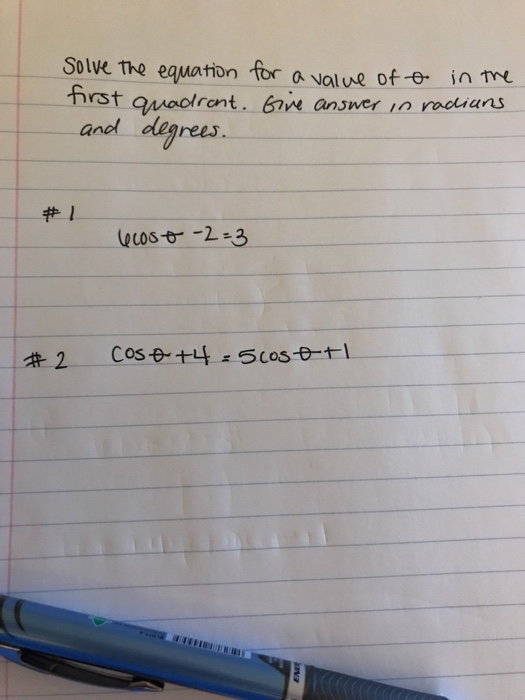 Solve the equation for a value of θ in the
first quadrant. Give answer in radians
and degrees.
#1
6cosθ -2=3
#2 cosθ+4=5cosθ+1